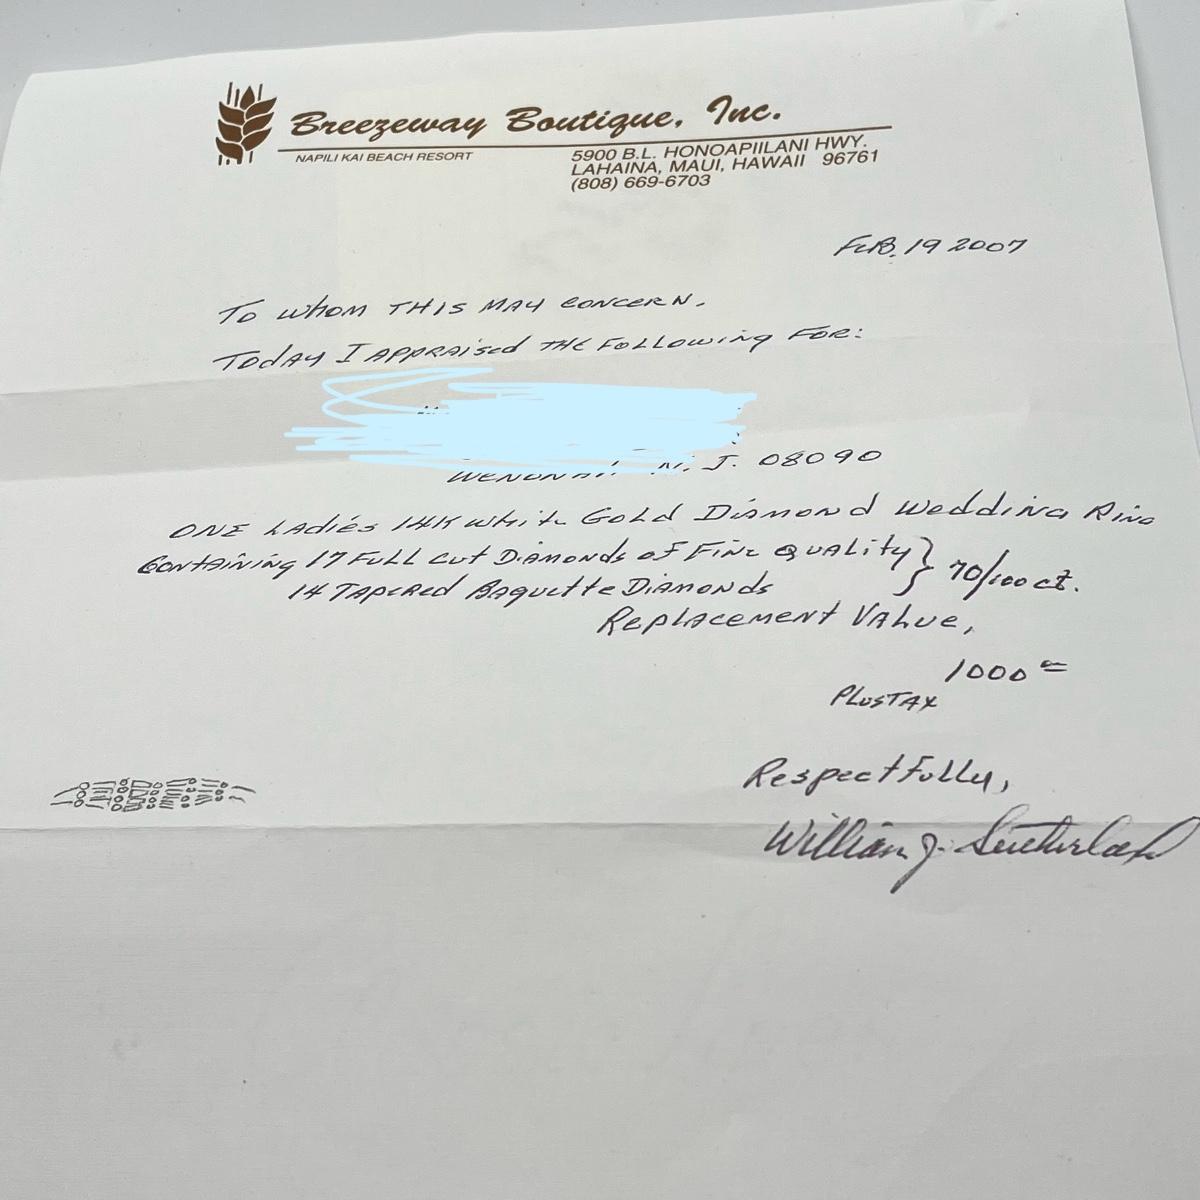 Breezeway Boutique, Inc.
NAPILI KAI BEACH RESORT
5900 B.L. HONOAPIILANI HWY.
LAHAINA, MAUI, HAWAII 96761
(808) 669-6703
FEB. 19 2007
TO WHOM THIS MAY CONCERN,
TODAY I APPRAISED THE FOLLOWING FOR:
WENONAH N.J. 08090
ONE LADIES 14K WHITE GOLD DIAMOND WEDDING RING
CONTAINING 17 FULL CUT DIAMONDS OF FINE QUALITY } 70/100 ct.
14 TAPERED BAGUETTE DIAMONDS
REPLACEMENT VALUE,
1000
PLUS TAX
RESPECTFULLY,
William J. Sutherland